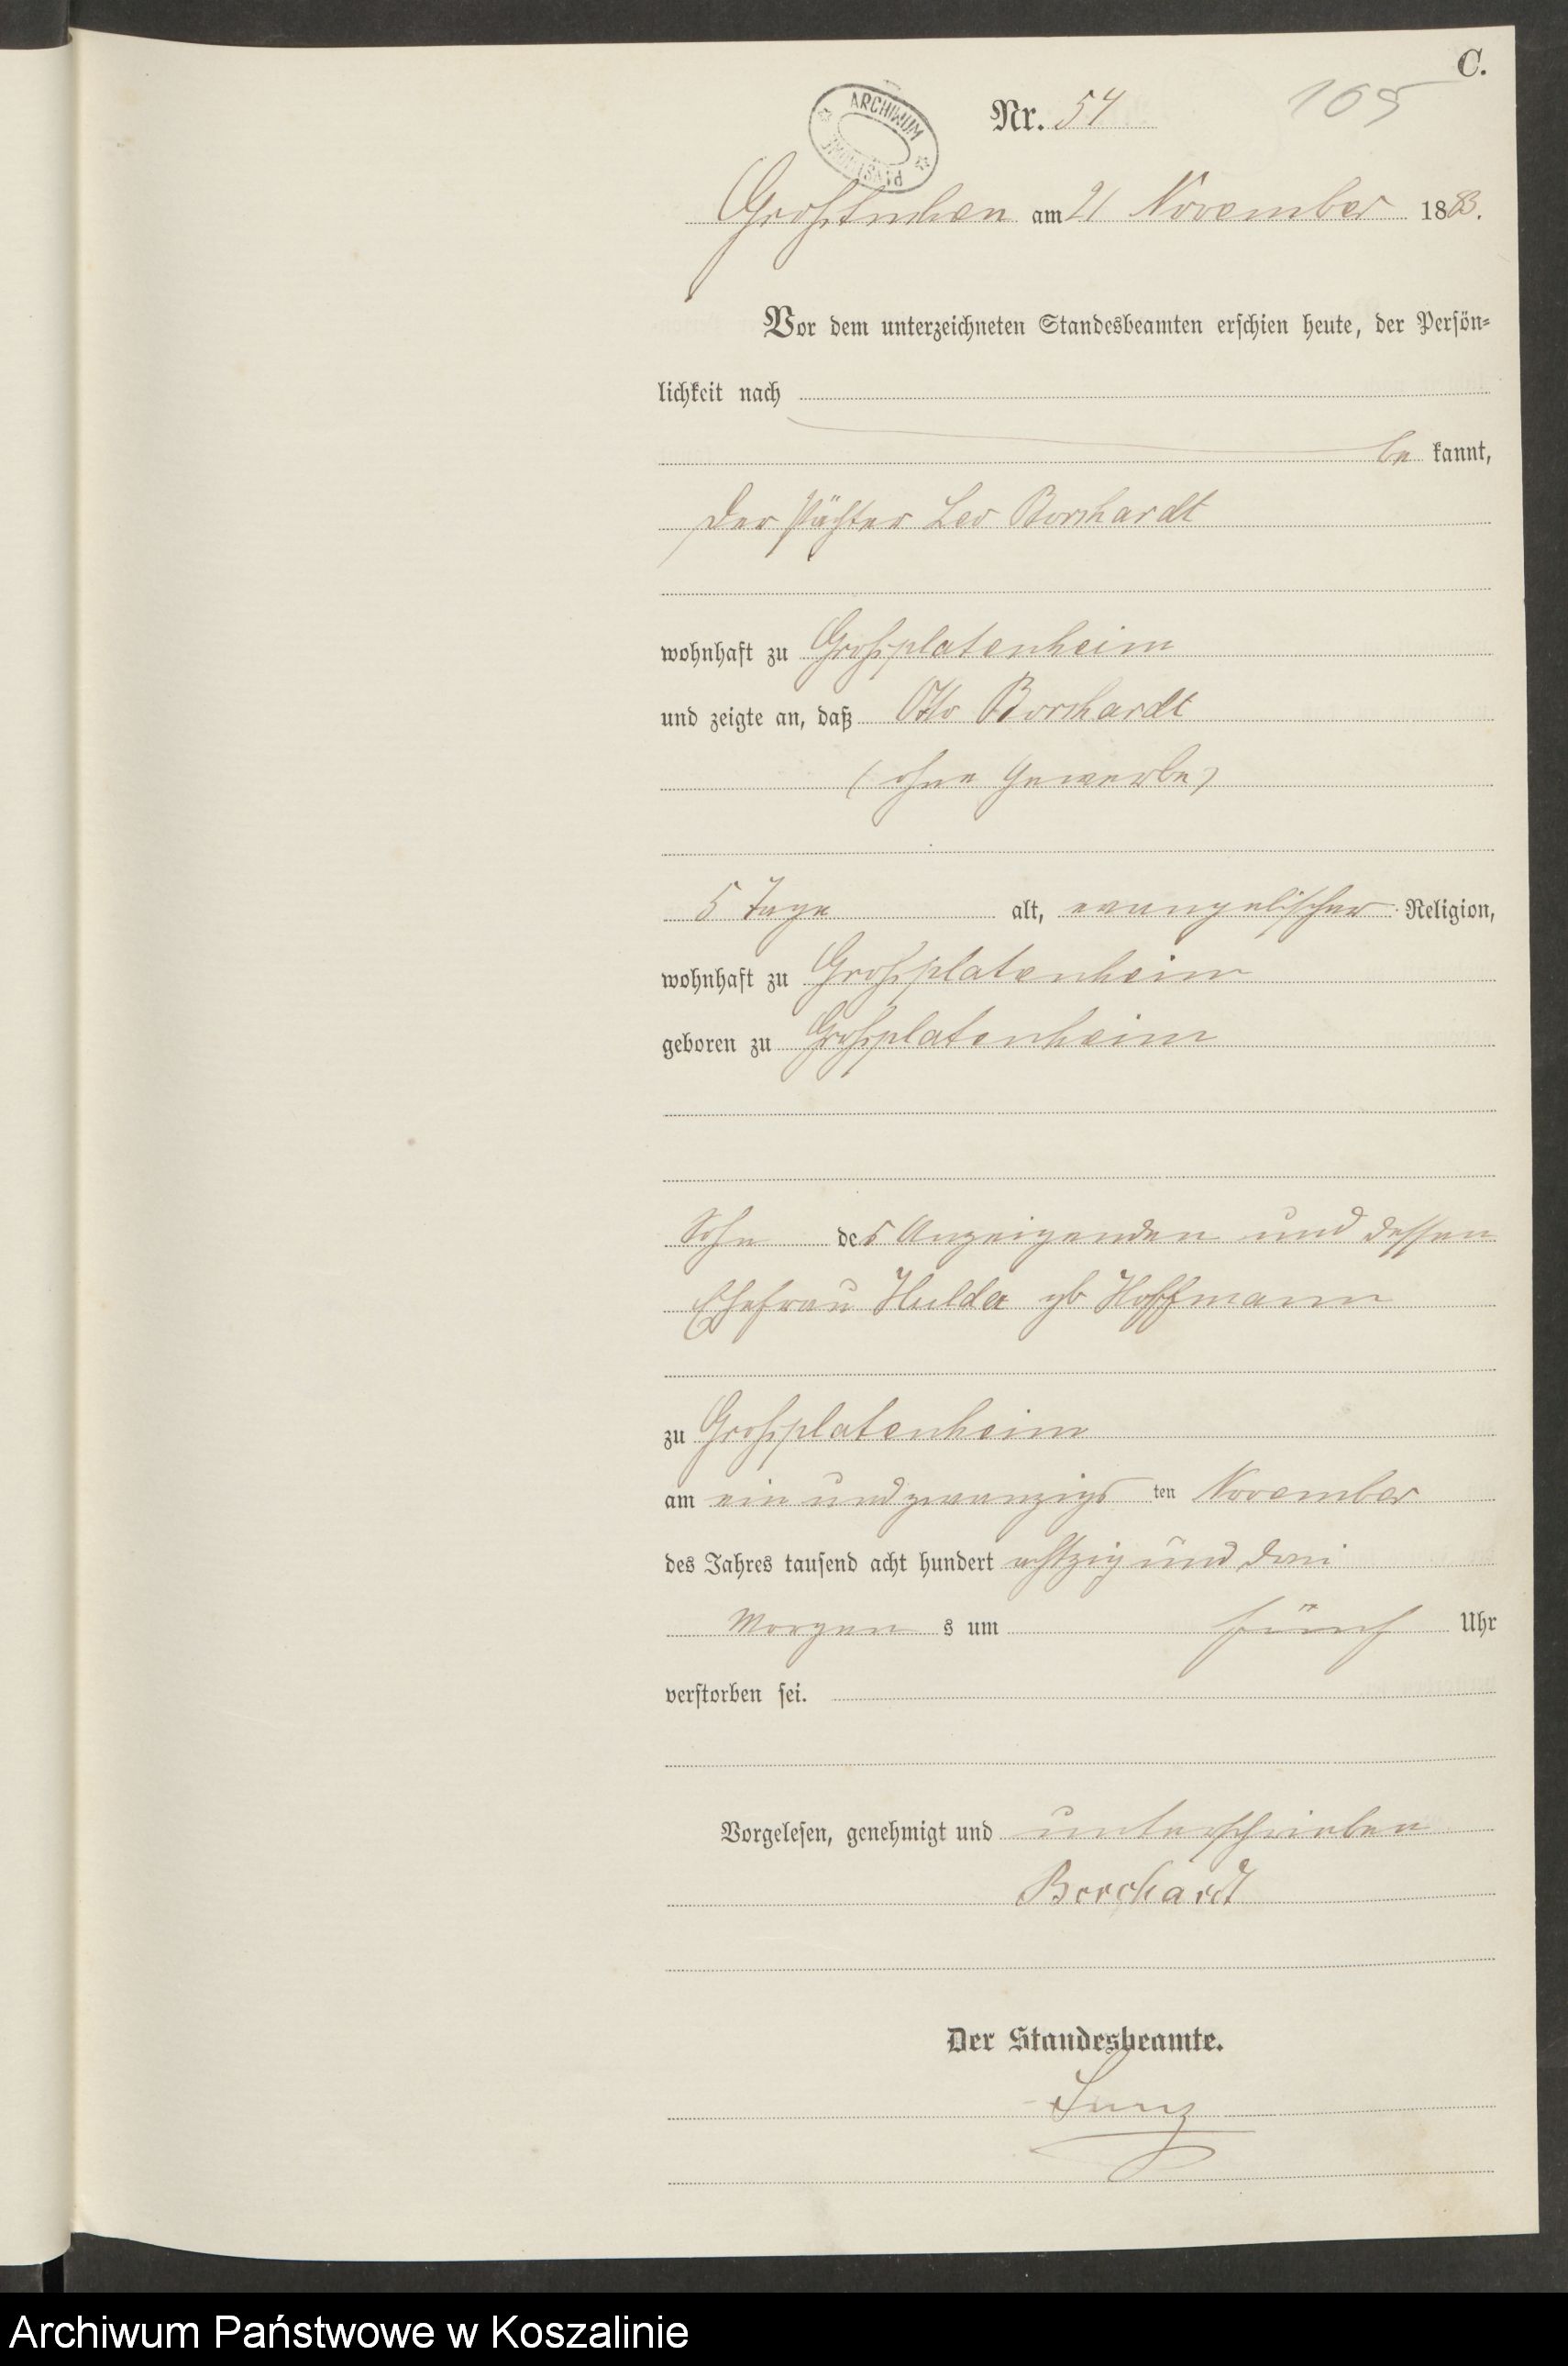 C.
ARCHIWUM
Nr. 54
105
Großtuchen am 21 November 1883.
Vor dem unterzeichneten Standesbeamten erschien heute, der Persön-
lichkeit nach
be kannt,
der Pächter Leo Borchardt
wohnhaft zu Großplatenheim
und zeigte an, daß Otto Borchardt
(ohne Gewerbe)
5 Tage alt, evangelischer Religion,
wohnhaft zu Großplatenheim
geboren zu Großplatenheim
Sohn des Anzeigenden und dessen
Ehefrau Hulda gb Hoffmann
zu Großplatenheim
am ein und zwanzigs ten November
des Jahres tausend acht hundert achtzig und drei
Morgen s um fünf Uhr
verstorben sei.
Vorgelesen, genehmigt und unterschrieben
Borchardt
Der Standesbeamte.
Archiwum Państwowe w Koszalinie